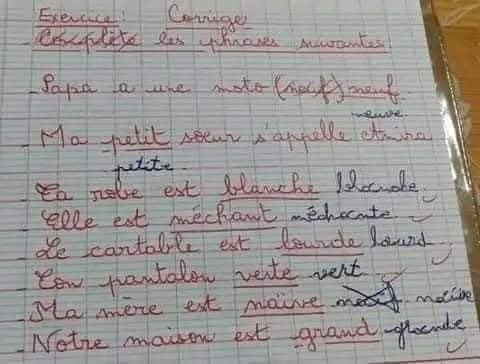 Exercice : Corrigé
Complète les phrases suivantes
_ Papa a une moto (neuf) neuf
neuve
_ Ma petit sœur s'appelle Amira
petite
_ Ta robe est blanche blanche
_ Elle est méchant méchante
_ Le cartable est lourde lourd
_ Ton pantalon verte vert
_ Ma mère est naïve naïve
_ Notre maison est grand grande